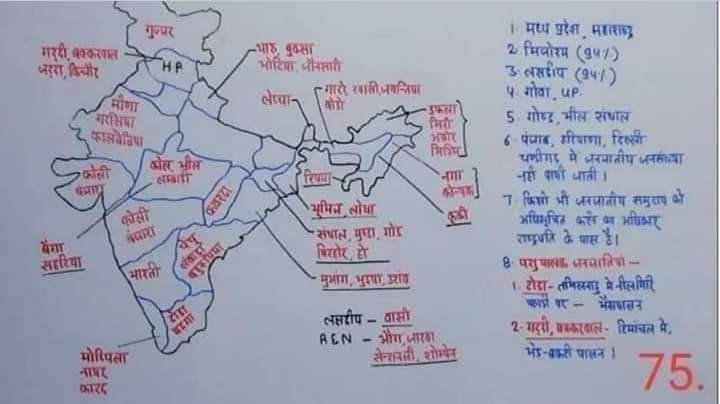 गुज्जर
गद्दी, बक्करवाल
जद्दरा, किन्नौर
H.P.
थारु, बुक्सा
भोटिया, जौनसारी
लेप्चा
गारो, खासी, जयन्तिया
डफला
मिरी
अबोर
मिश्मि
नगा
कोन्यक
कुकी
मीणा
गरसिया
कालबेलिया
कोली
बंजारा
कोल, भील
लम्बाडी
रियांग
भूमिज, लोधा
संथाल, मुण्डा, गोंड
बिरहोर, हो
मुआंग, भुइया, उरांव
बैगा
सहरिया
कोली
बंजारा
भारती
चेंचू
टोडा
बडगा
मोपिला
नायर
कादर
लक्षद्वीप – वासी
A&N – ओंग, जारवा
सेन्टीनली, शोम्पेन
1. मध्य प्रदेश, महाराष्ट्र
2. मिजोरम (94%)
3. लक्षद्वीप (94%)
4. गोवा, U.P.
5. गोण्ड, भील संथाल
6. पंजाब, हरियाणा, दिल्ली
चण्डीगढ़ में जनजातीय जनसंख्या
नहीं पायी जाती।
7. किसी भी जनजातीय समुदाय को
अधिसूचित करने का अधिकार
राष्ट्रपति के पास है।
8. पशुपालक जनजातियाँ –
1. टोडा – तमिलनाडु में नीलगिरि
पर – भैंसपालन
2. गद्दी, बक्करवाल – हिमाचल में,
भेड़-बकरी पालन।
75.